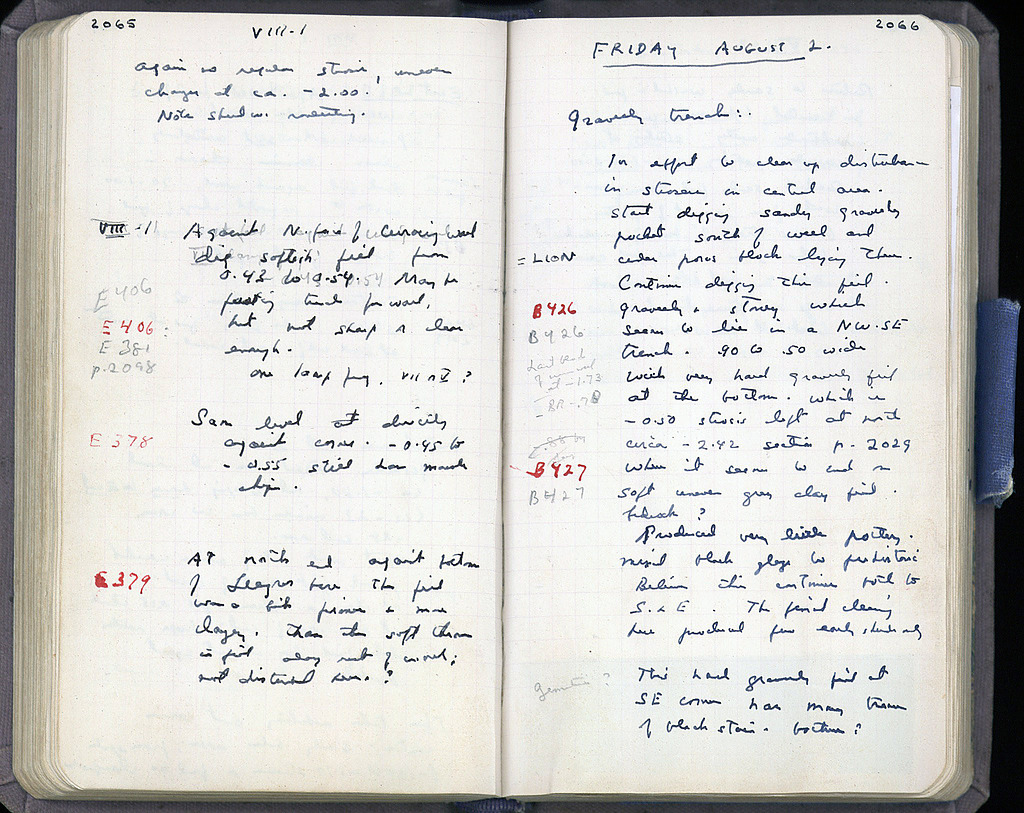 2065
VIII-1
again no regular strosis, uneven
changes at ca. -2.00.
Note sherd w.
VIII-11
Against N face of wall
dig softish fill from
0.43 to 0.54. May be
footing trench for wall,
E406
E406 :
but not sharp or clear
E381
enough.
p.2098
one lamp frag. VII or ?
Same level at directly
E378
against corner. -0.45 to
-0.55 still has marble
chips.
At north end against bottom
E379
of the fill
was a bit firmer & more
clayey. than the soft thrown
in fill along rest of wall;
not disturbed here. ?
2066
FRIDAY AUGUST 2.
Gravelly trench:.
In effort to clear up disturbance
in strosis in central area.
start digging sandy gravelly
pocket south of well and
= LION
under poros block lying there.
Continue digging this fill.
B426
gravelly & stoney which
B426
seems to lie in a NW-SE
trench. .90 to .50 wide
at -1.73
with very hard gravelly fill
at the bottom. which is
-0.50 strosis left at north
circa -2.42 section p. 2029
B427
when it seems to end on
B427
soft uneven grey clay fill.
?
Produced very little pottery.
mixed black glaze to prehistoric
Believe this continues both to
S. & E. The final cleaning
here produced few early sherds only
?
This hard gravelly fill at
SE corner has many traces
of black stain. bottom?